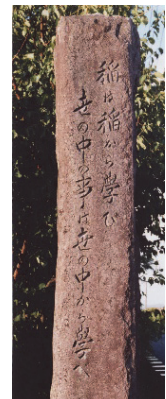 稲は稲から學び
世の中の事は世の中から學べ